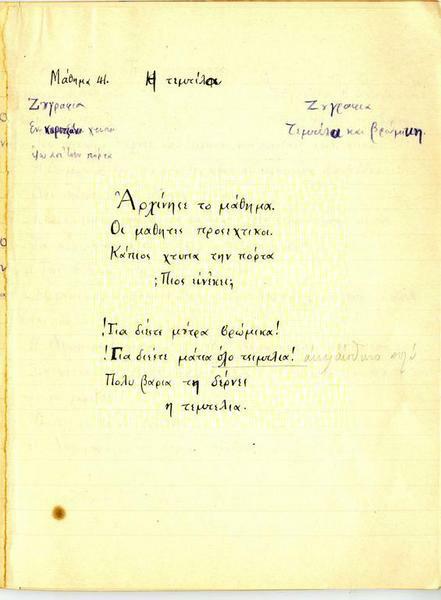 Μάθημα 41. Η τεμπέλα
Ζυγραφια
Εν κορτζάκι χτυπα
εξω απ' την πόρτα
Ζυγραφια
Τεμπέλα και βρώμικη.
Αρχίνησε το μάθημα.
Οι μαθητις προσεχτικοι.
Κάπιος χτυπα την πόρτα
;Πιος είνε κει;
!Για διέστε μούτρα βρώμικα!
!Για διέστε μάτια όλο τεμπελια!
Πολυ βαρια τη δέρνει
η τεμπελια.